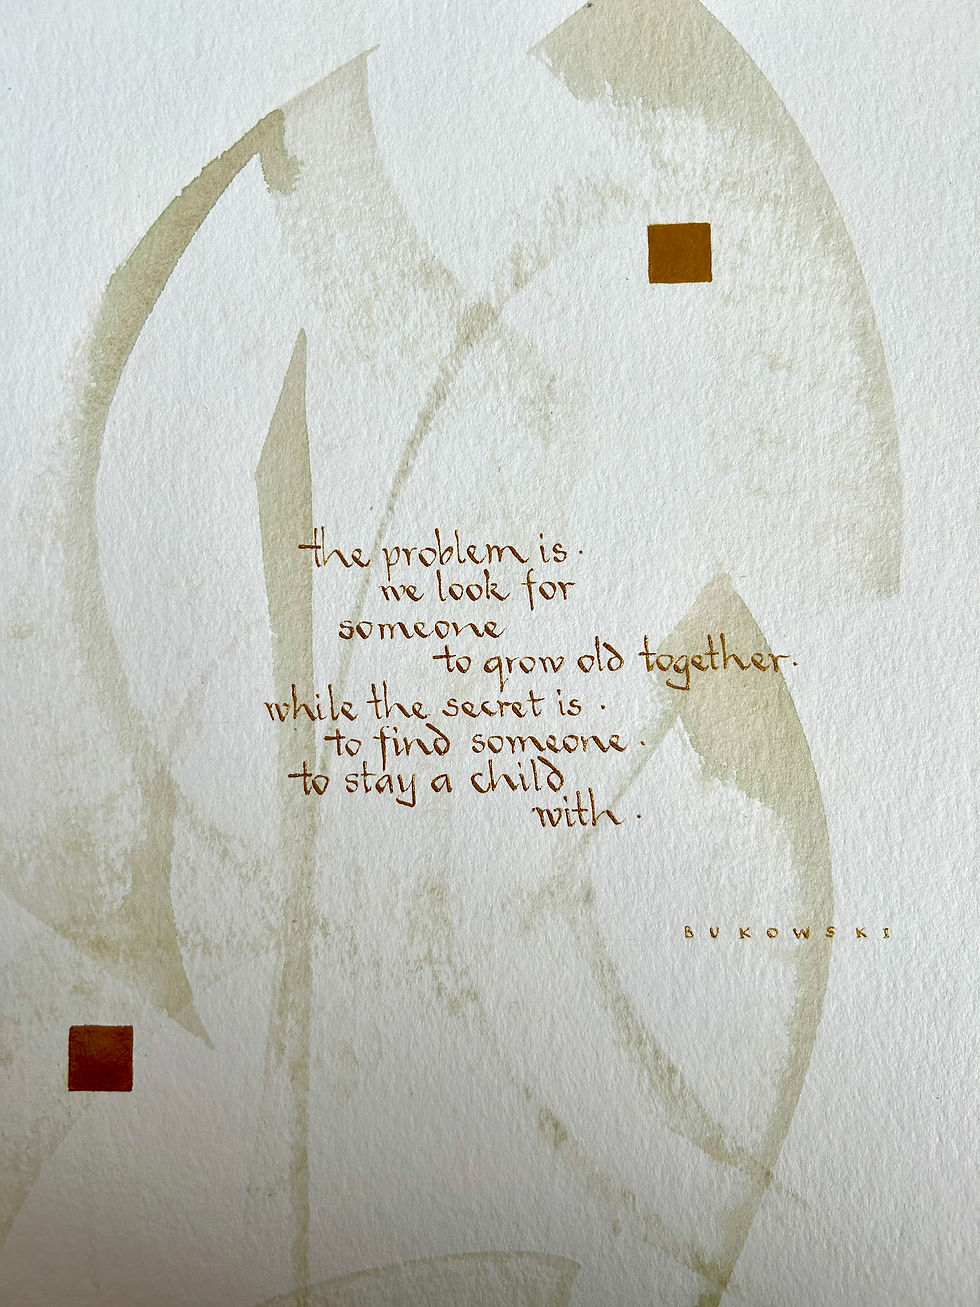 the problem is·
we look for
someone
to grow old together·
while the secret is ·
to find someone ·
to stay a child
with ·
BUKOWSKI